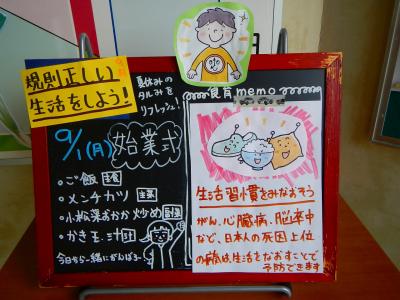 規則正しい
生活をしよう!
夏休みの
タルみを
リフレッシュ!
9/1(月)
始業式
・ご飯 主食
・メンチカツ 主菜
・小松菜おかか炒め 副菜
・かき玉汁 汁
今日から一緒にがんばろ〜
食育memo
生活習慣をみなおそう
がん、心臓病、脳卒中
など、日本人の死因上位
の病気は、生活をなおすことで
予防できます